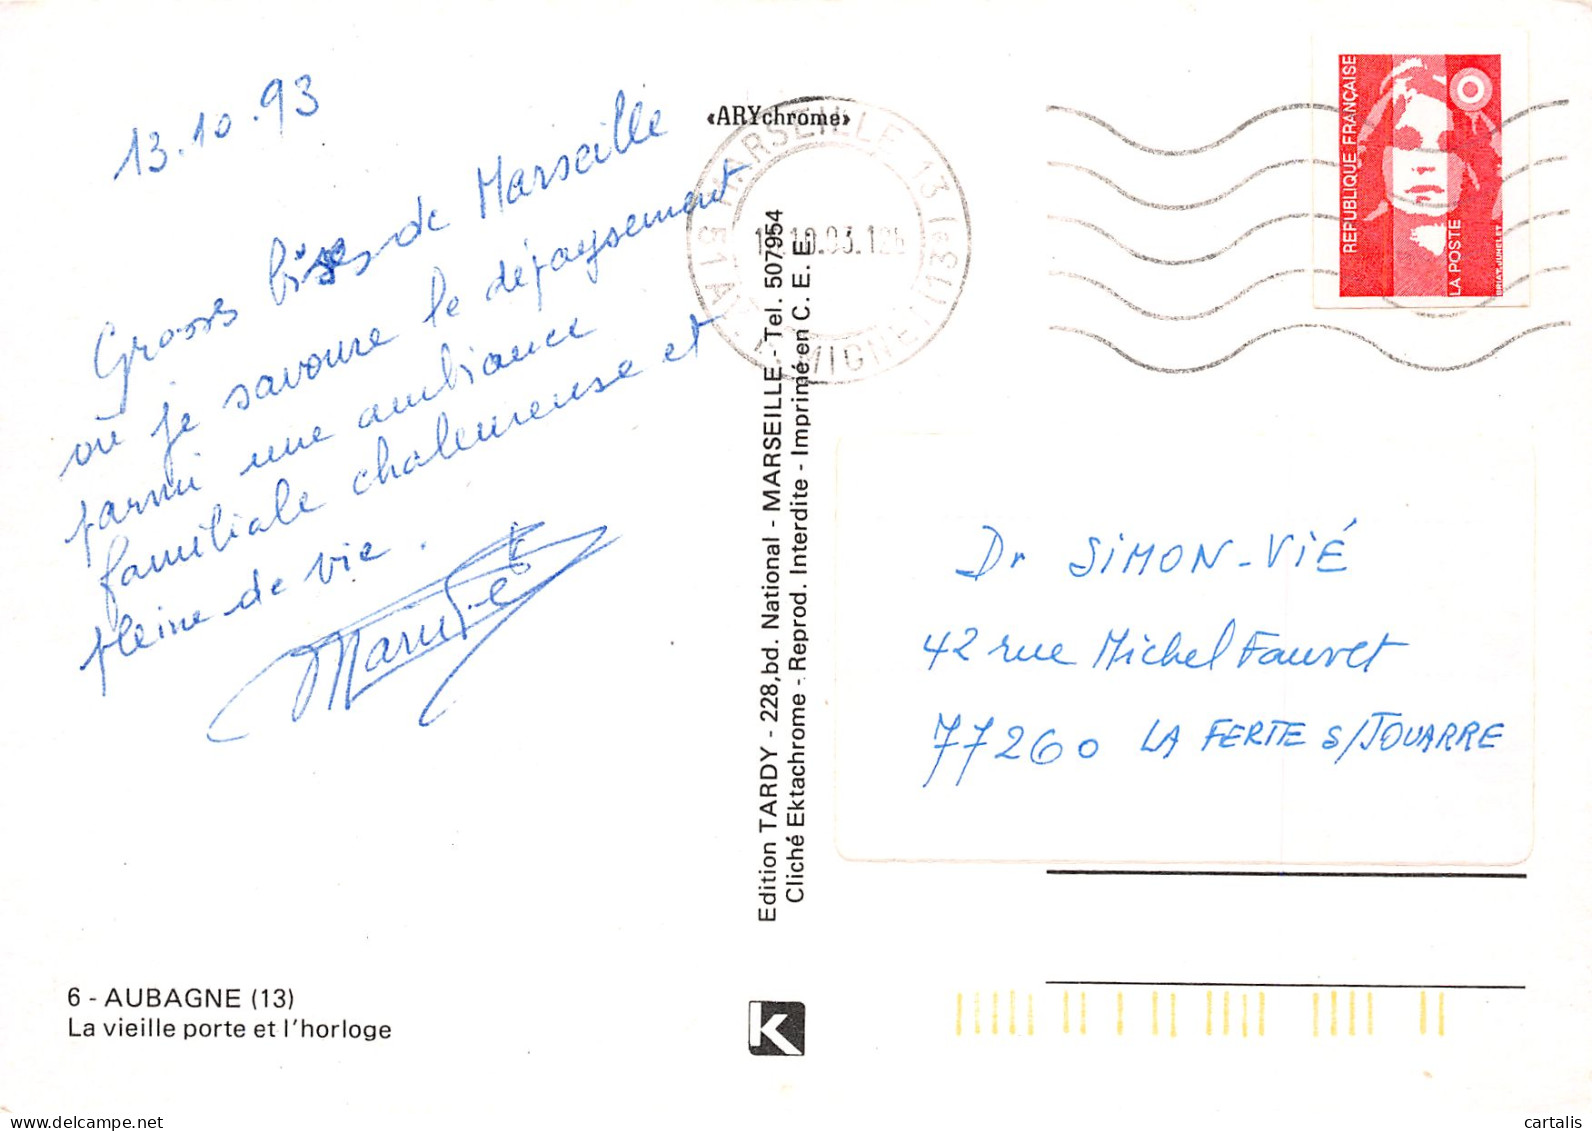 13.10.93
Grosses bises de Marseille
où je savoure le dépaysement
parmi une ambiance
familiale chaleureuse et
pleine de vie.
6 - AUBAGNE (13)
La vieille porte et l'horloge
«ARYchrome»
MARSEILLE 13
10.93.
Edition TARDY - 228,bd. National - MARSEILLE - Tel. 507954
Cliché Ektachrome - Reprod. Interdite - Imprimé en C. E. E.
K
REPUBLIQUE FRANÇAISE
LA POSTE
BRIAT-JUMELET
Dr SIMON-VIÉ
42 rue Michel Fauvet
77260 LA FERTE S/JOUARRE
cartalis